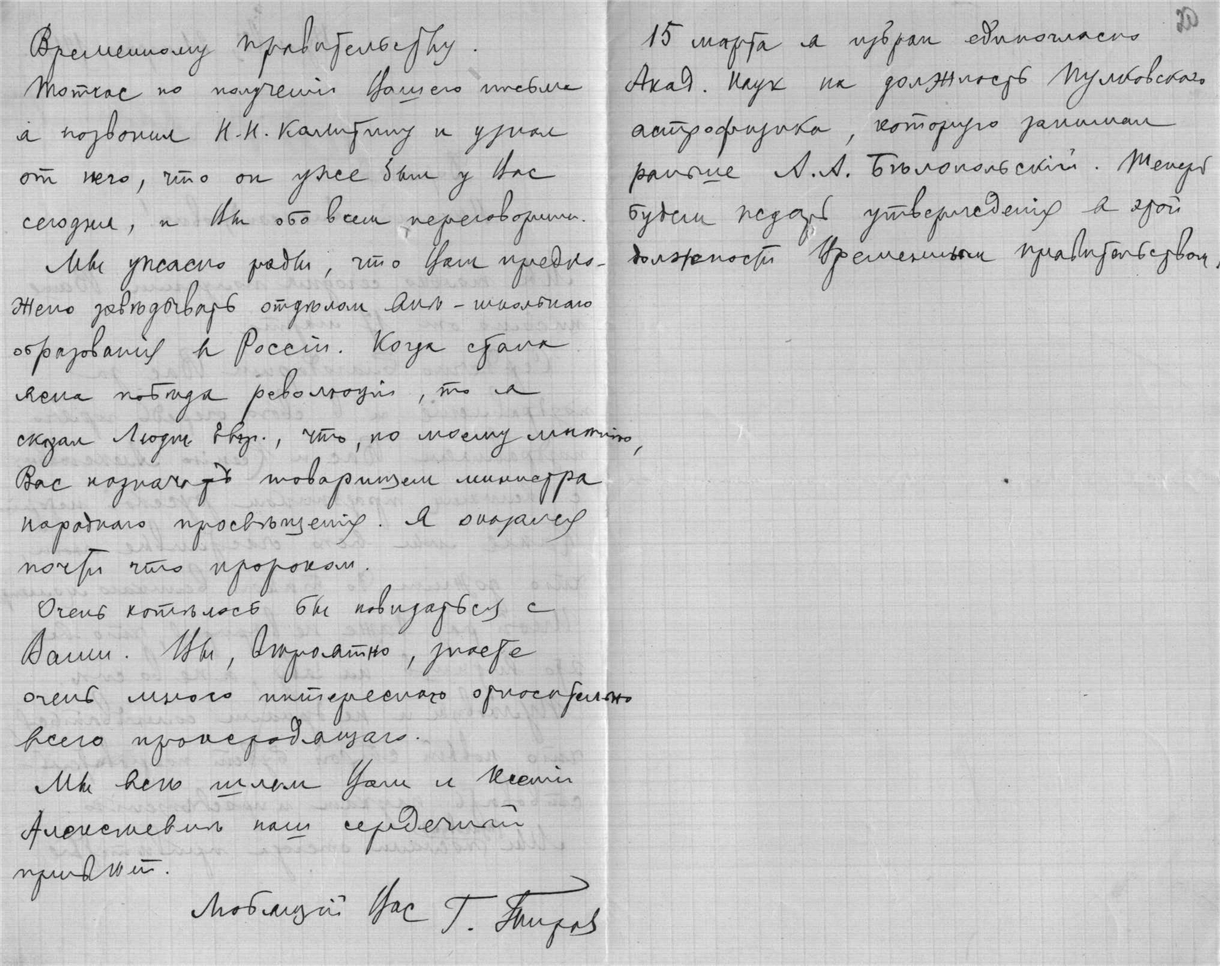 Временному правительству.
Тотчас по полученіи Вашего письма
я позвонил Н.Н. Калитину и узнал
от него, что он уже был у Вас
сегодня, и Вы обо всем переговорили.
Мы ужасно рады, что Вам предло-
жено завѣдывать отдѣлом внѣ-школьнаго
образованія в Россіи. Когда стала
ясна побѣда революціи, то я
сказал Людм. Евгр., что, по моему мнѣнію,
Вас назначат товарищем министра
народнаго просвѣщенія. Я оказался
почти что пророком.
Очень хотѣлось бы повидаться с
Вами. Вы, вѣроятно, знаете
очень много интереснаго относительно
всего происходящаго.
Мы всѣ шлем Вам и Ксеніи
Алексѣевнѣ наш сердечный
привѣт.
Любящій Вас Г. Тихов
20
15 марта я избран единогласно
Акад. Наук на должность Пулковскаго
астрофизика, которую занимал
раньше А.А. Бѣлопольскій. Теперь
будем ждать утвержденія в этой
должности Временным правительством.